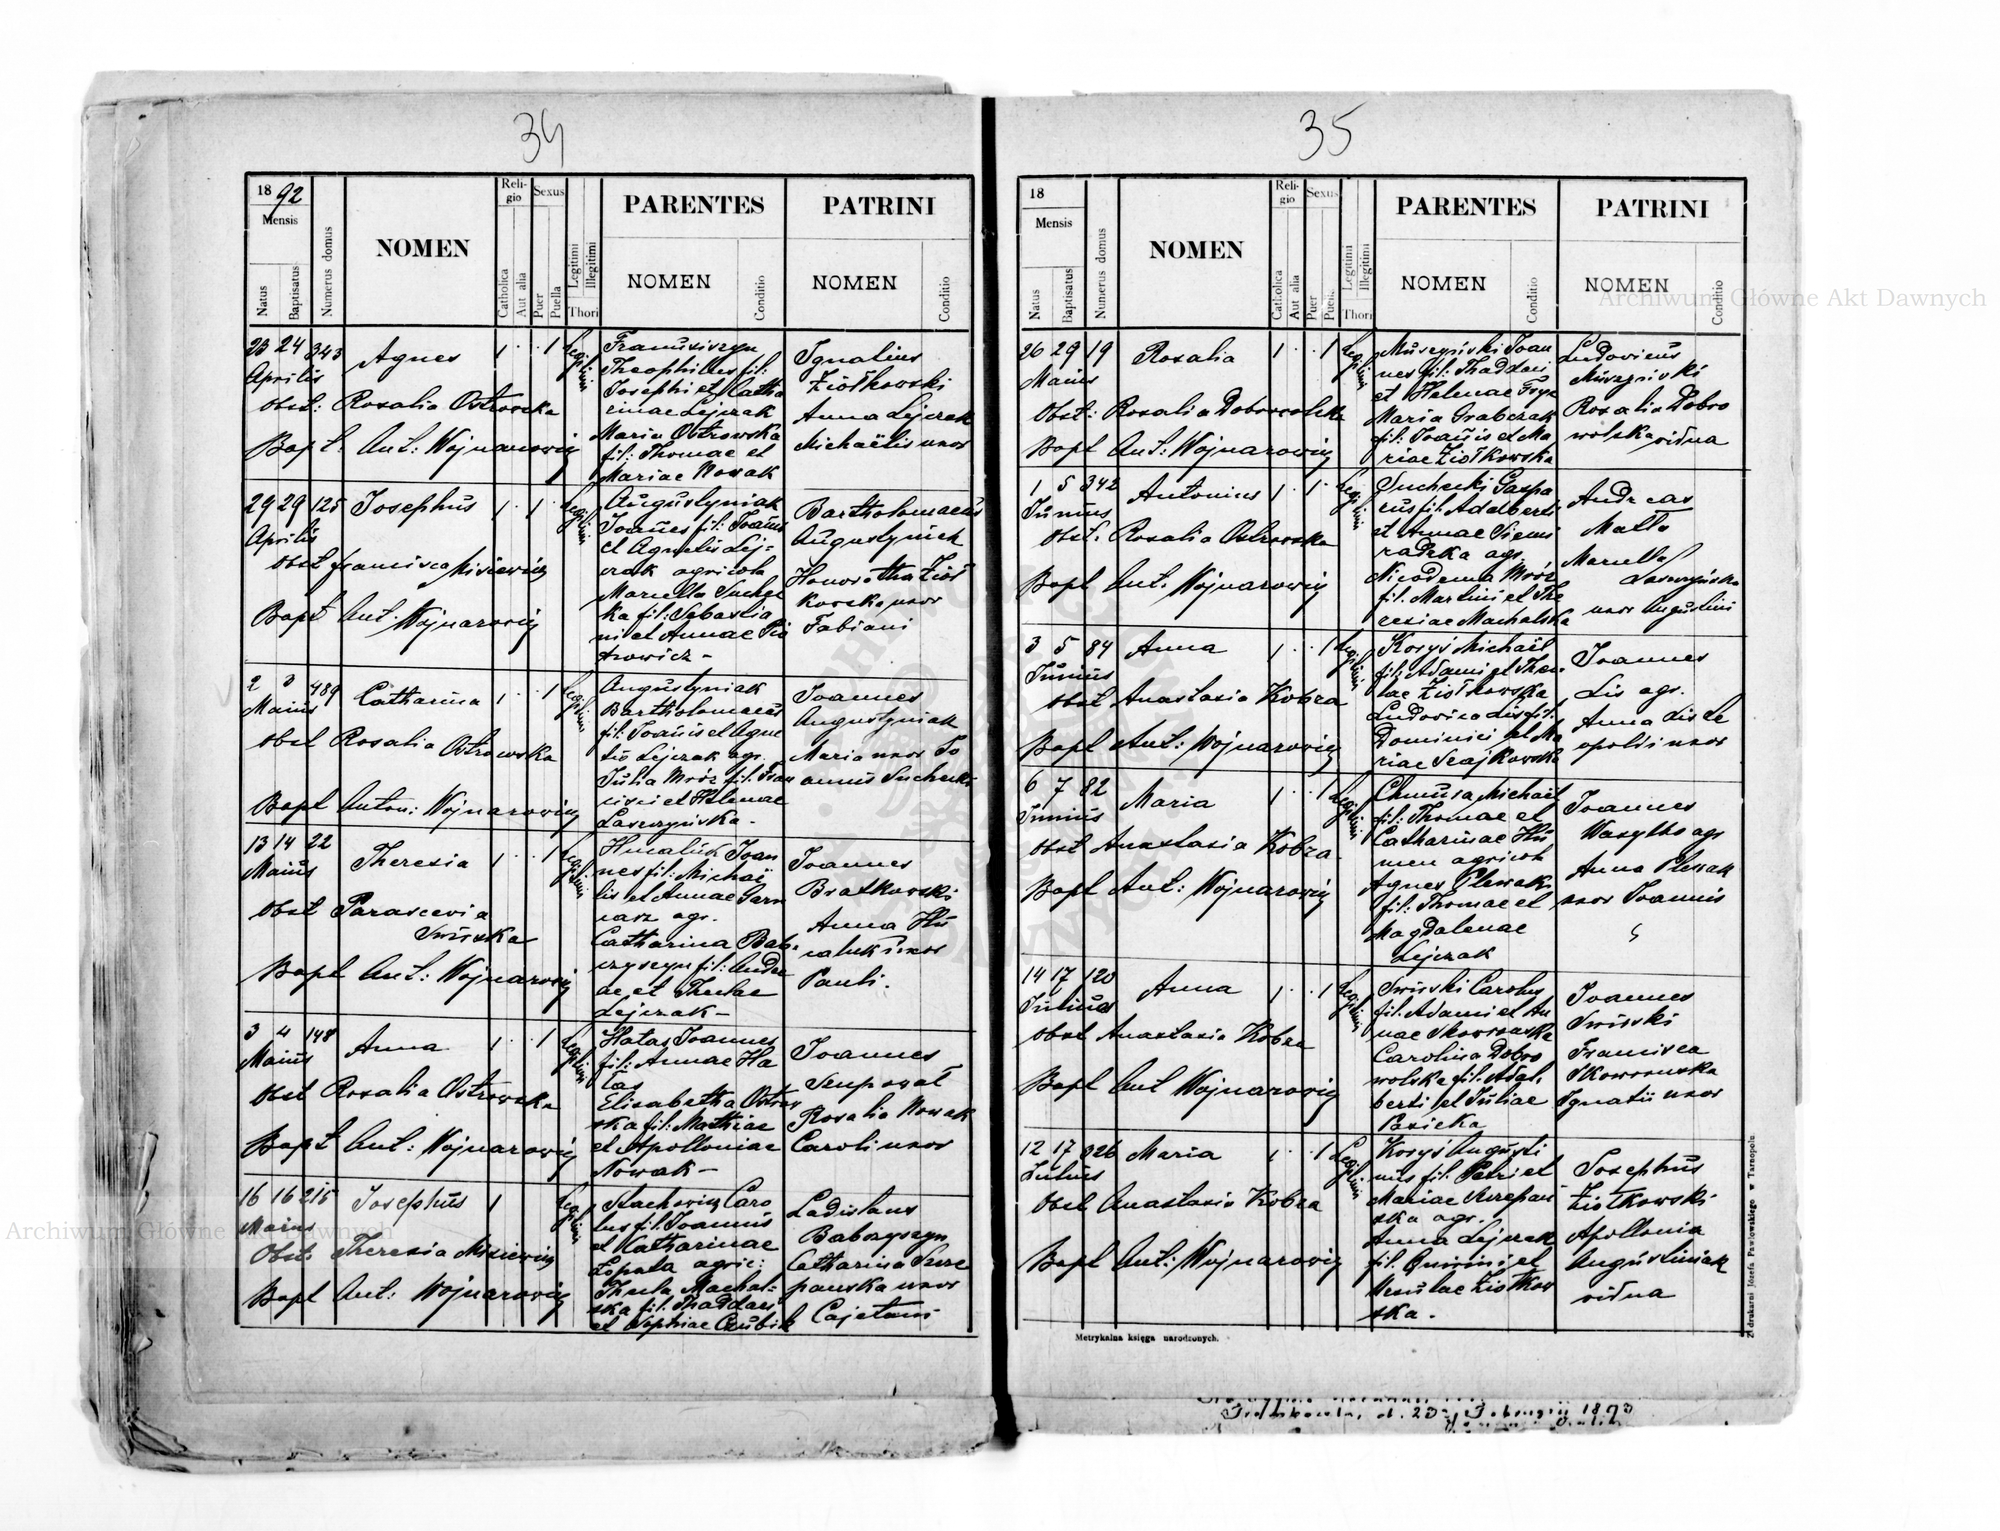 34
1892
Mensis
Natus
Baptisatus
Numerus domus
NOMEN
Religio
Catholica
Aut alia
Sexus
Puer
Puella
Legitimi
Illegitimi
Thori
PARENTES
NOMEN
Conditio
PATRINI
NOMEN
Conditio
23 24 343 Agnes 1 1 Legitimi
Aprilis
Obst: Rosalia Ostrowska
Bapt: Ant: Wojnarowicz
Franusiszyn
Theophilus fil:
Josephi et Catha
rinae Lejczak
Maria Ostrowska
fil: Thomae et
Mariae Nowak
Ignatius
Ziółkowski
Anna Lejczak
Michaëlis uxor
29 29 125 Josephus 1 1 Legitimi
Aprilis
Obst Francisca Misiewicz
Bapt Ant. Wojnarowicz
Augustyniak
Joannes fil: Joannis
et Agnetis Lej-
czak agricola
Marcella Suche
ka fil: Sebastia
ni et Annae Pio
trowicz -
Bartholomaeus
Augustyniak
Honoratha Ziół
kowska uxor
Fabiani
2 3 489 Catharina 1 1 Legitimi
Maius
Obst Rosalia Ostrowska
Bapt Anton: Wojnarowicz
Augustyniak
Bartholomaeus
fil: Joannis et Agne
tis Lejczak agr.
Julia Mróz fil: Fran
cisci et Helenae
Laszczyńska -
Joannes
Augustyniak
Maria uxor Jo
annis Suchecki
13 14 22 Theresia 1 1 Legitimi
Maius
Obst Parascevia
Swirska
Bapt Ant: Wojnarowicz
Humaluk Joan
nes fil: Michaë
lis et Annae Garn
carz agr.
Catharina Bab
czyszyn fil: Andre
ae et Theclae
Lejczak -
Joannes
Bratkowski
Anna Hu
caluk uxor
Pauli.
3 4 148 Anna 1 1 Legitimi
Maius
Obst Rosalia Ostrowska
Bapt Ant: Wojnarowicz
Hałas Joannes
fil: Annae Ha
łas
Elisabetha Ostrow
ska fil: Mathiae
et Apolloniae
Nowak -
Joannes
Rosalia Nowak
Caroli uxor
16 16 215 Josephus 1 Legitimi
Maius
Obst: Theresia Misiewicz
Bapt Ant: Wojnarowicz
Stachowicz Caro
lus fil. Joannis
et Catharinae
Łopata agric:
Thecla Machal-
ska fil. Thaddaei
et Sophiae Czubik
Ladislaus
Babczyszyn
Catharina Szcze
pańska uxor
Cajetani
35
18
Mensis
Natus
Baptisatus
Numerus domus
NOMEN
Religio
Catholica
Aut alia
Sexus
Puer
Puella
Legitimi
Illegitimi
Thori
PARENTES
NOMEN
Conditio
PATRINI
NOMEN
Conditio
26 29 19 Rosalia 1 1 Legitimi
Maius
Obst: Rosalia Dobrowolska
Bapt Ant: Wojnarowicz
Muszyński Joan
nes fil: Thaddaei
et Helenae Fryz
Maria Grabczak
fil: Joannis et Ma
riae Ziółkowska
Ludovicus
Muszyński
Rosalia Dobro
wolska vidua
1 5 342 Antonius 1 1 Legitimi
Junius
Obst. Rosalia Ostrowska
Bapt Ant. Wojnarowicz
Suchecki Gaspa
rus fil. Adalberti
et Annae Siemi
radzka agr.
Nicodema Mróz
fil. Martini et The
resiae Machalska
Andreas
Matło
Marcella
Laszczyńska
uxor Augustini
3 5 84 Anna 1 1 Legitimi
Junius
Obst Anastasia Kobza
Bapt Ant: Wojnarowicz
Koryś Michaël
fil: Adami et Thec-
lae Ziółkowska
Ludovica Lis fil:
Dominici et Ma
riae Szajkowska
Joannes
Lis agr.
Anna Lis Le
opoldi uxor
6 7 82 Maria 1 1 Legitimi
Junius
Obst Anastasia Kobza
Bapt Ant: Wojnarowicz
Chmura Michaël
fil: Thomae et
Catharinae Hu
men agricola
Agnes Plewak
fil: Thomae et
Magdalenae
Lejczak
Joannes
Wasylko agr
Anna Plewak
uxor Joannis
14 17 120 Anna 1 1 Legitimi
Julius
Obst Anastasia Kobza
Bapt Ant Wojnarowicz
Swirski Carolus
fil. Adami et An
nae Skowrońska
Carolina Dobro
wolska fil. Adal.
berti et Juliae
Pasieka
Joannes
Swirski
Francisca
Skowrońska
Ignatii uxor
12 17 326 Maria 1 1 Legitimi
Julius
Obst Anastasia Kobza
Bapt Ant: Wojnarowicz
Koryś Augusti
nus fil. Petri et
Mariae Szczepań
ska agr.
Anna Lejczak
fil. Quirini et
Ursulae Ziółkow
ska.
Josephus
Ziółkowski
Apollonia
Augustiniak
vidua
Metrykalna księga narodzonych.
Z drukarni Józefa Pawłowskiego w Tarnopolu.
Archiwum Główne Akt Dawnych
Archiwum Główne Akt Dawnych